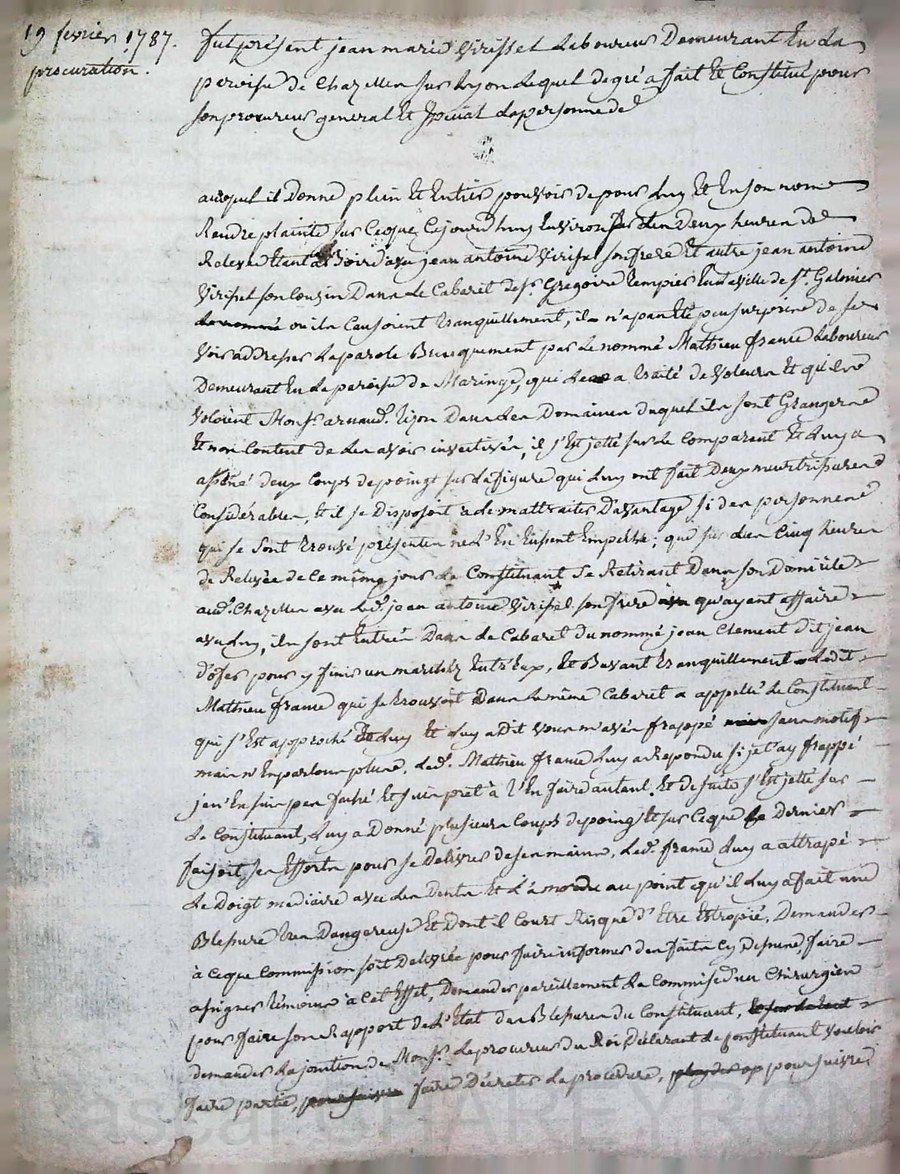 19 fevrier 1787.
procuration.
fut présent jean marie Virisset Laboureur Demeurant En La
paroisse de Chazelles sur Lyon Lequel de gré a fait Et Constitué pour
son procureur general Et special La personne de
auquel il Donne plein Et Entier pouvoir de pour Luy Et En son nom
Rendre plainte sur Ceque Cejourd'huy Environ sur Les Deux heures de
Relevé Etant a Boire avec jean antoine Virisset son frere Et autre jean antoine
Virisset son Cousin Dans Le Cabaret de Sr. Gregoire Tempier En La ville de St. Galmier
ou ils Causoient tranquillement, ils n'a pas Eté peu surprins de se
voir addresser La parole Brusquement par Le nommé Mathieu france Laboureur
Demeurant En La paroisse de Maringe, qui Les a traité de Voleurs Et qu'ils
Voloient Monsr. arnaud Lyon Dans Les Domaines duquel ils sont Grangers
Et non Content de Les avoir invectivés, il s'Est jetté sur Le Comparant Et Luy a
asséné deux Coups de poingt sur La figure qui Luy ont fait Deux meurtrissures
Considérables, Et il se Disposoit a le maltraiter D'avantage si des personnes
qui se sont trouvé présentes ne L'En Eussent Empeché; que sur Les Cinq heures
de Relevée de Ce même jour Le Constituant Se Retirant Dans son Domicile
aud. Chazelles avec Led. jean antoine Virisset son frere qu'ayant affaire
avec Luy, ils sont Entrés Dans Le Cabaret du nommé jean Clement dit jean
pour y finir un marché Entr'Eux, Et Buvant tranquillement Ledit
Mathieu france qui se trouvoit Dans Le même Cabaret a appellé Le Constituant
qui s'Est approché de Luy Et Luy a dit vous m'avés frappé sans motif
mais n'En parlons plus, Led. Mathieu france Luy a Repondu si je t'ay frappé
j'en'En suis pas faché Et suis prêt à t'En faire autant. Et de suite s'Est jetté sur
Le Constituant, Luy a Donné plusieurs Coups de poing Et sur Ceque Le Dernier
faisoit ses Efforts pour se Delivrer de ses mains, Led. france Luy a attrapé
Le Doigt mediaire avec Les Dents Et L'a mordu au point qu'il Luy a fait une
Blessure tres Dangereuse Et Dont il Court Risque d'Etre Estropié, Demander
à Ceque Commission soit Delivrée pour faire informer des faits Cy Dessus, faire
assigner témoins à Cet Effet, Demander pareillement La Commise d'un Chirurgien
pour faire son Rapport de L'Etat des Blessures du Constituant,
demander La jontion de Monsr. Le procureur du Roi, Déclarant Le Constituant vouloir
faire partie, faire Décreter La procedure, poursuivre